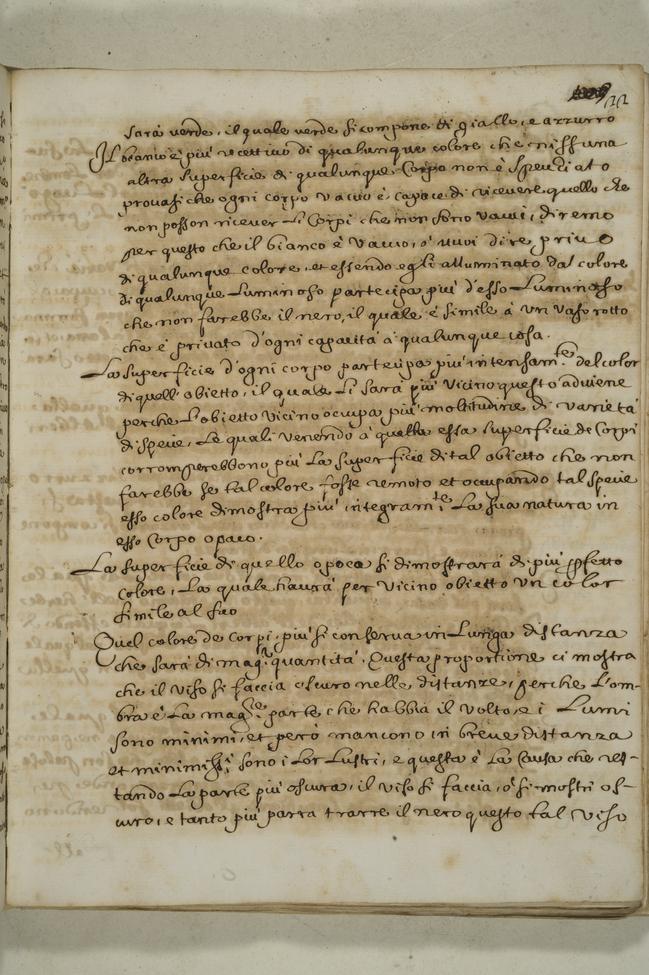 22
sarà verde, il quale verde si compone di giallo, e azzurro
Il bianco è più recettivo di qualunque colore, che nissuna
altra superficie di qualunque Corpo non è Specchiato
provasi che ogni corpo vacuo è capace di ricevere quello che
non posson ricever Li Corpi che non sono vacui, diremo
per questo che il bianco è vacuo, ò vuoi dire privo
di qualunque colore, et essendo egli alluminato dal colore
di qualunque Luminoso partecipa più d'esso Luminoso
che non farebbe il nero, il quale è simile à un vaso rotto
che è privato d'ogni capacità à qualunque cosa.
La superficie d'ogni corpo partecipa più intensam.te del color
di quell'obietto, il quale Li sarà più vicino questo adviene
perche L'obietto vicino ocupa più moltitudine di varietà
di specie, Le quali venendo à quella essa superficie de Corpi
corromperebbono più La superficie di tal obietto che non
farebbe se tal colore fosse remoto et ocupando tal specie
esso colore dimostra più integram.te La sua natura in
esso Corpo opaco.
La superficie di quello opaco si dimostrarà di più pfetto
colore, La quale haurà per vicino obietto un color
simile al suo
Quel colore de corpi più si conserva in Lunga distanza
che sarà di mag.r quantità. Questa proportione ci mostra
che il viso si faccia oscuro nelle distanze, perche L'om-
bra è La mag.re parte che habbia il volto, e i Lumi
sono minimi, et però mancono in breve distanza
et minimi sono i Lor Lustri, e questa è La causa che res-
tando La parte più oscura, il viso si faccia, ò si mostri os-
curo, e tanto più parra trarre il nero questo tal viso